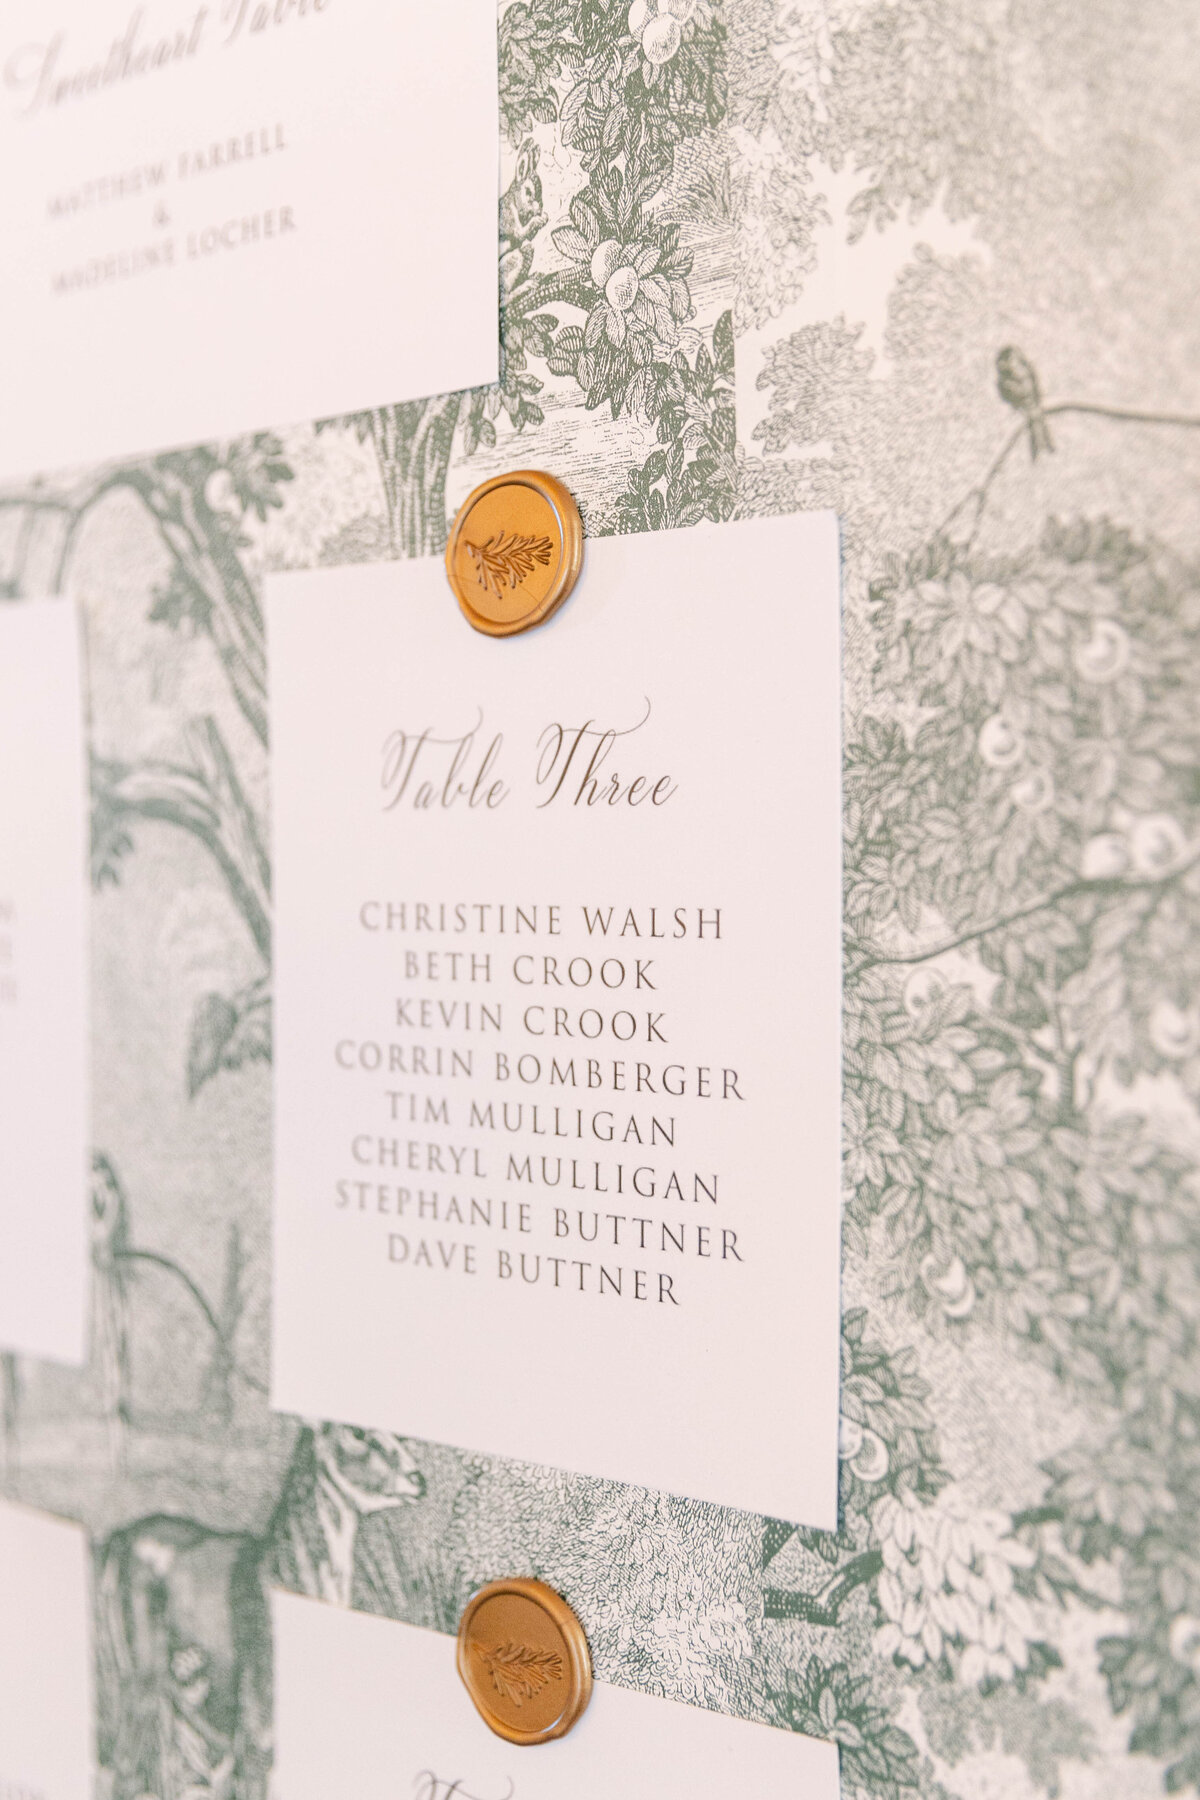 Sweetheart Table
MATTHEW FARRELL
&
MADELINE LOCHER
Table Three
CHRISTINE WALSH
BETH CROOK
KEVIN CROOK
CORRIN BOMBERGER
TIM MULLIGAN
CHERYL MULLIGAN
STEPHANIE BUTTNER
DAVE BUTTNER